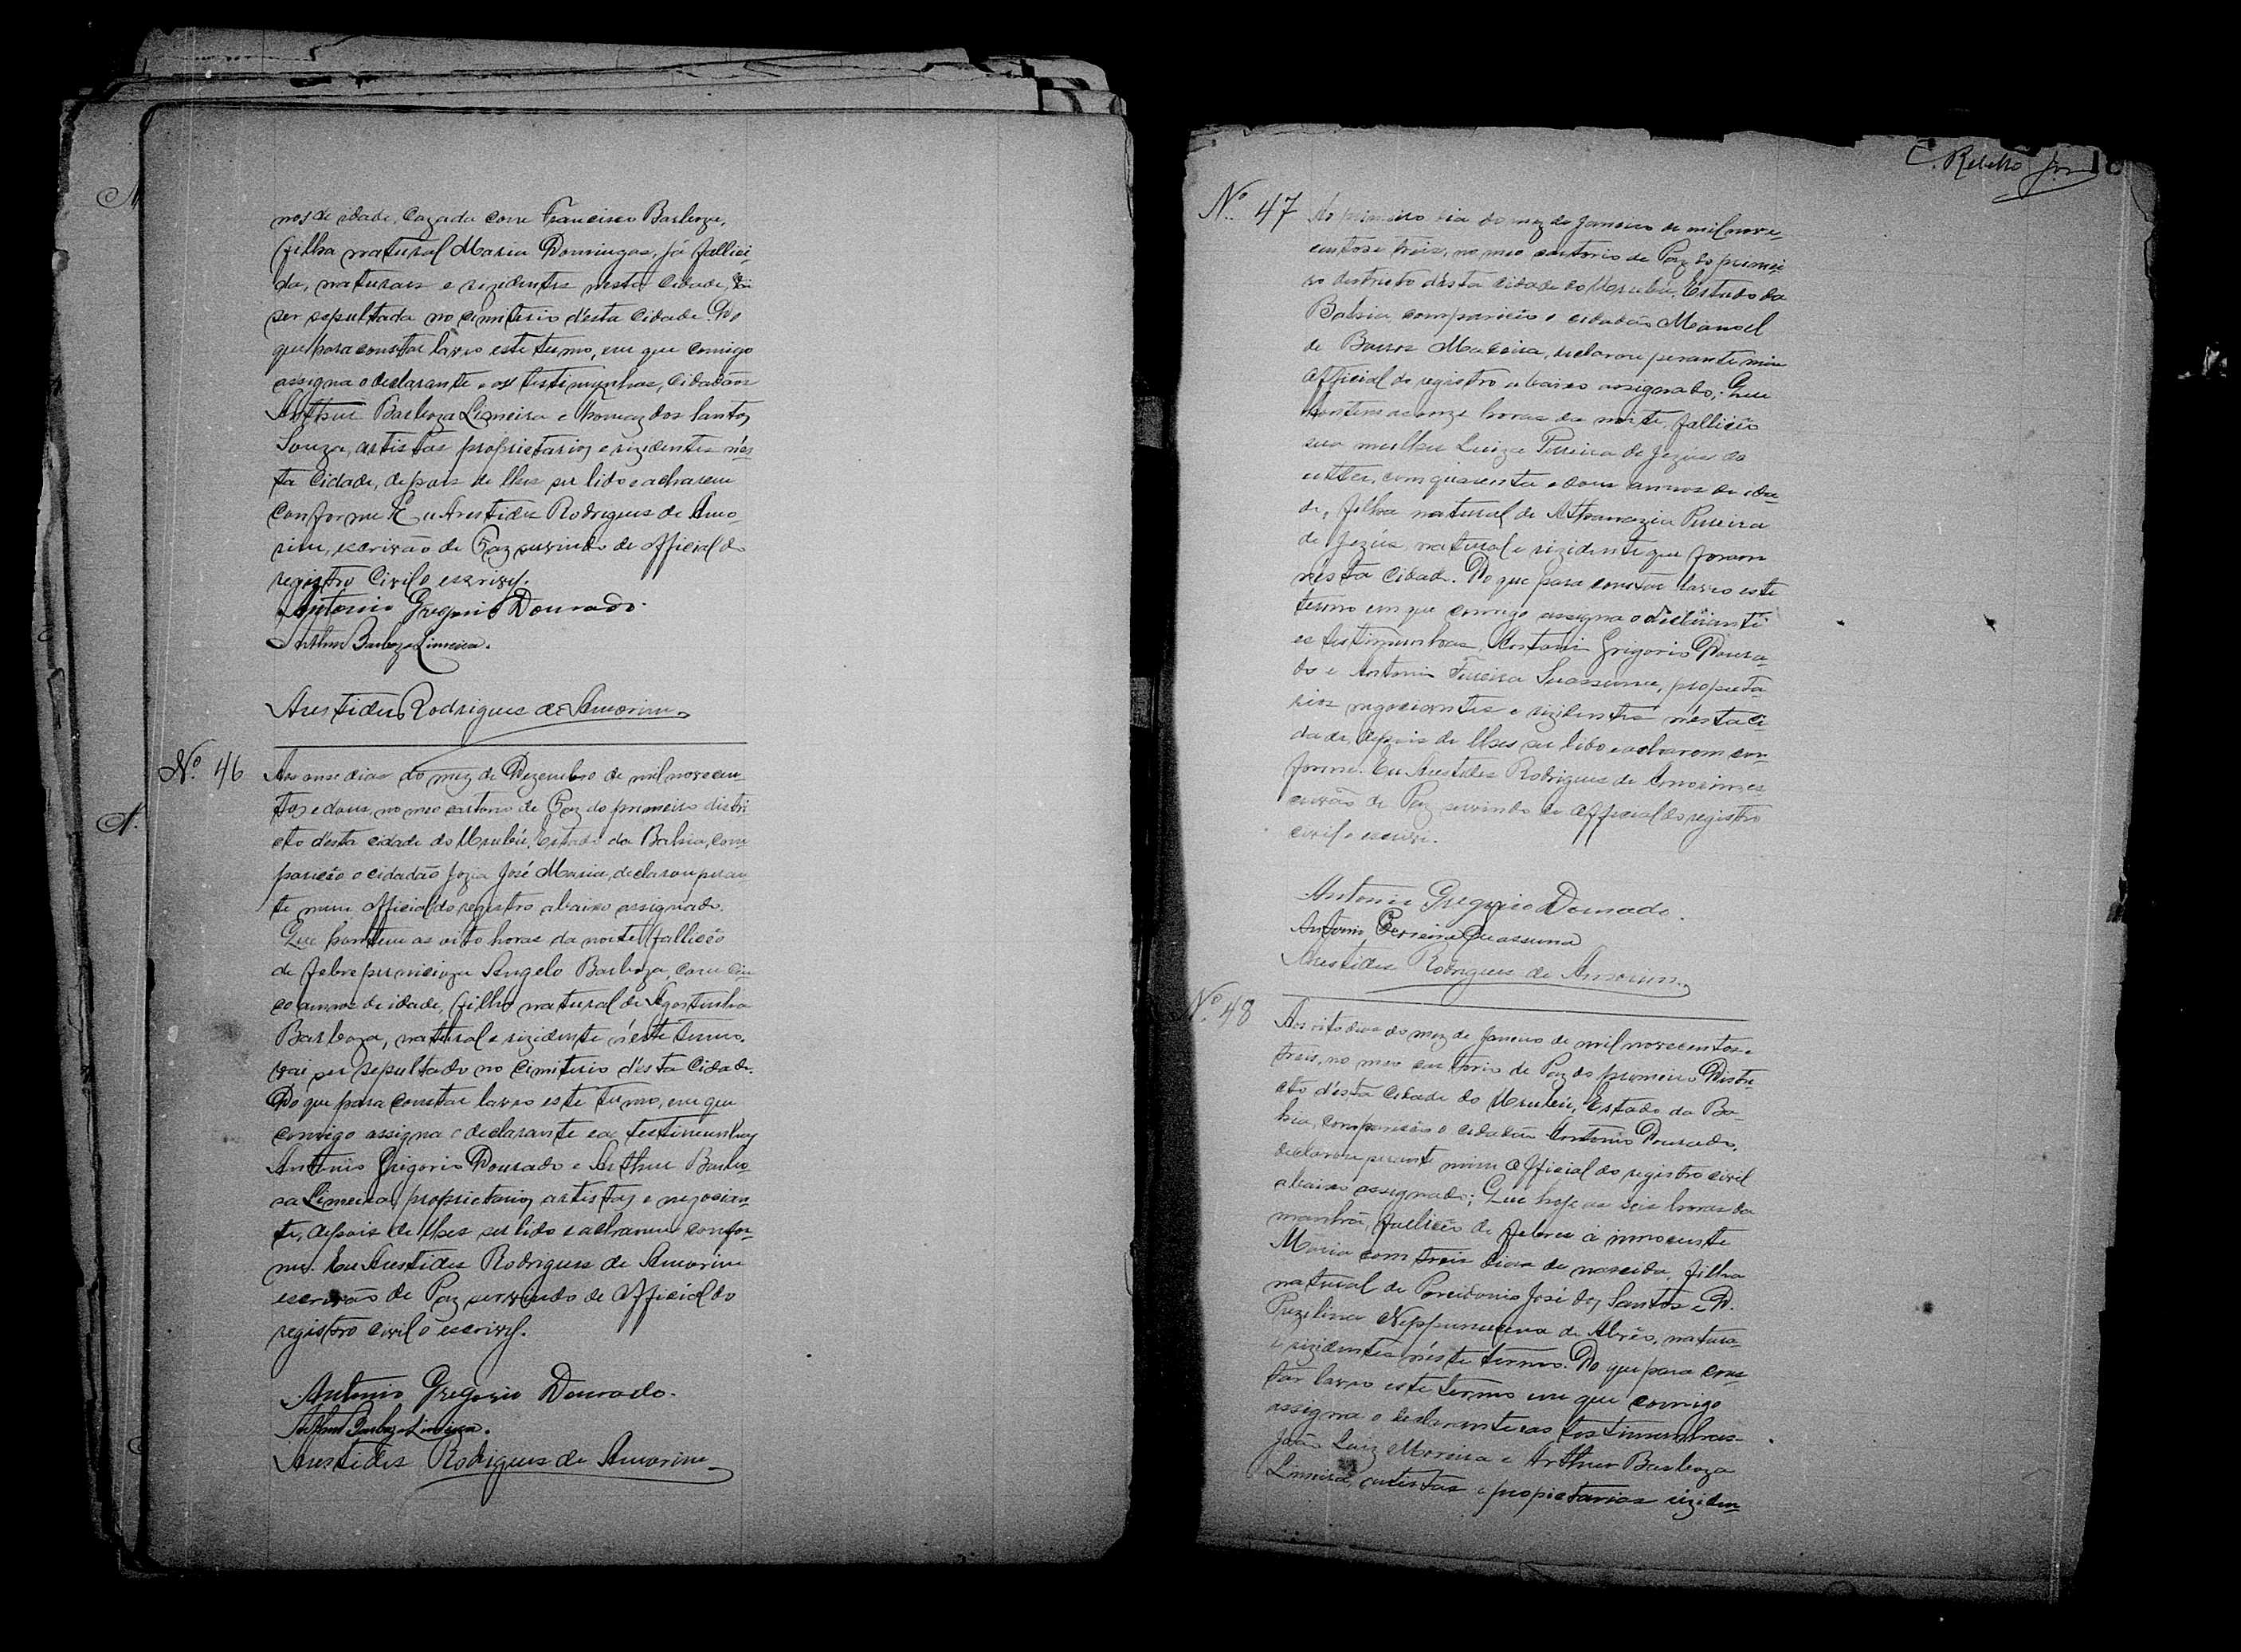 nos de idade, Cazada com Francisco Barboza,
filha natural Maria Domingas, já fallici-
da, naturais e rezidentes nesta Cidade, vai
ser sepultada no cimiterio d'esta Cidade. Do
que para constar lavro este termo, em que comigo
assigna o declarante e as testimunhas, Cidadãos
Arthur Barboza Limeira e Thomaz dos Santos
Souza, artistas proprietarios e rizidentes nés-
ta Cidade, depois de lhes ser lido e acharem
conforme. Eu Arestides Rodrigues de Amo-
rim, escrivão de Paz servindo de official do
registro Civil o escrivy.
Antonio Gregorio Dourado.
Arthur Barboza Limeira.
Arestides Rodrigues de Amorim
Nº 46 Aos onse dias do mez de Dezembro de mil novecen-
tos e dous, no meo cartorio de Paz do primeiro distri-
cto d'esta cidade do Urubú, Estado da Bahia, com-
pareceo o cidadão José Maria, declarou peran-
te mim official do registro abaixo assignado.
Que hontem as oito horas da noite falliceo
de febre pernicioza Angelo Barboza, com cin-
co annos de idade, filho natural de Agostinha
Barboza, natural e rizidente n'este termo.
vai ser sepultado no Cimiterio d'esta Cidade.
Do que para constar lavro este termo, em que
comigo assigna o declarante e as testimunhas
Antonio Grigorio Dourado e Arthur Barbo-
sa Limeira, proprietarios artistas e negocian-
te, depois de lhes ser lido e acharem confor-
me. Eu Arestides Rodrigues de Amorim
escrivão de Paz servindo de official do
registro civil o escrivy.
Antonio Gregorio Dourado.
Arthur Barboza Limeira.
Arestides Rodrigues de Amorim
C. Rebello Jor
Nº 47 Ao primeiro dia do mez de Janeiro de mil nove-
centos e treis, no meo cartorio de Paz do primei-
ro districto d'esta cidade do Urubú, Estado da
Bahia, compareceo o cidadão Manoel
de Barros, declarou perante mim
official do registro abaixo assignado; Que
hontem as onze horas da noite, falliceo
sua mulher Luiza Pereira de Jezus do
com quarenta e dous annos de ida-
de, filha natural de Athanazia Pereira
de Jezus, natural e rizidente que foram
nesta Cidade. Do que para constar lavro este
termo em que comigo assigna o declarante
e as testimunhas Antonio Grigorio Doura-
do e Antonio Pereira Suassuna, proprieta-
rios negociantes e rizidentes nesta Ci-
dade, depois de lhes ser lido e acharem con-
forme. Eu Arestides Rodrigues de Amorim es-
crivão de Paz servindo de official do registro
civil o escrivi.
Antonio Gregorio Dourado.
Antonio Pereira Suassuna
Arestides Rodrigues de Amorim
Nº 48 Aos oito dias do mez de Janeiro de mil novecentos e
treis, no meo cartorio de Paz do primeiro Distri-
cto d'esta Cidade do Urubú, Estado da Ba-
hia, compareceo o cidadão Antonio Dourado,
declarou perante mim official do registro civil
abaixo assignado; Que hoje as seis horas da
manhã, falliceo de febre a innocente
Maria com treis dias de nascida, filha
natural de José dos Santos e D.
de Abrêo, natura-
e rizidentes néste termo. Do que para cons-
tar lavro este termo em que comigo
assigna o declarante e as testimunhas
João Luiz Moreira e Arthur Barboza
Limeira, artistas e propietarios riziden-